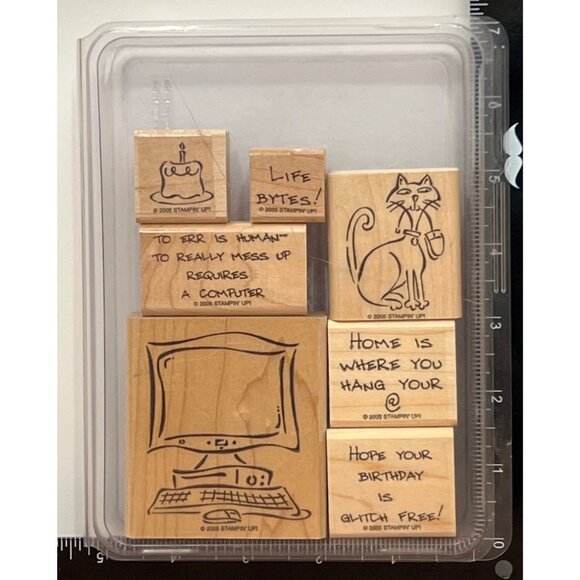 © 2005 STAMPIN' UP!
LIFE
BYTES!
© 2005 STAMPIN' UP!
TO ERR IS HUMAN—
TO REALLY MESS UP
REQUIRES
A COMPUTER
© 2005 STAMPIN' UP!
© 2005 STAMPIN' UP!
HOME IS
WHERE YOU
HANG YOUR
@
© 2005 STAMPIN' UP!
© 2005 STAMPIN' UP!
HOPE YOUR
BIRTHDAY
IS
GLITCH FREE!
© 2005 STAMPIN' UP!
7
6
5
4
3
2
1
0
5
4
3
2
1